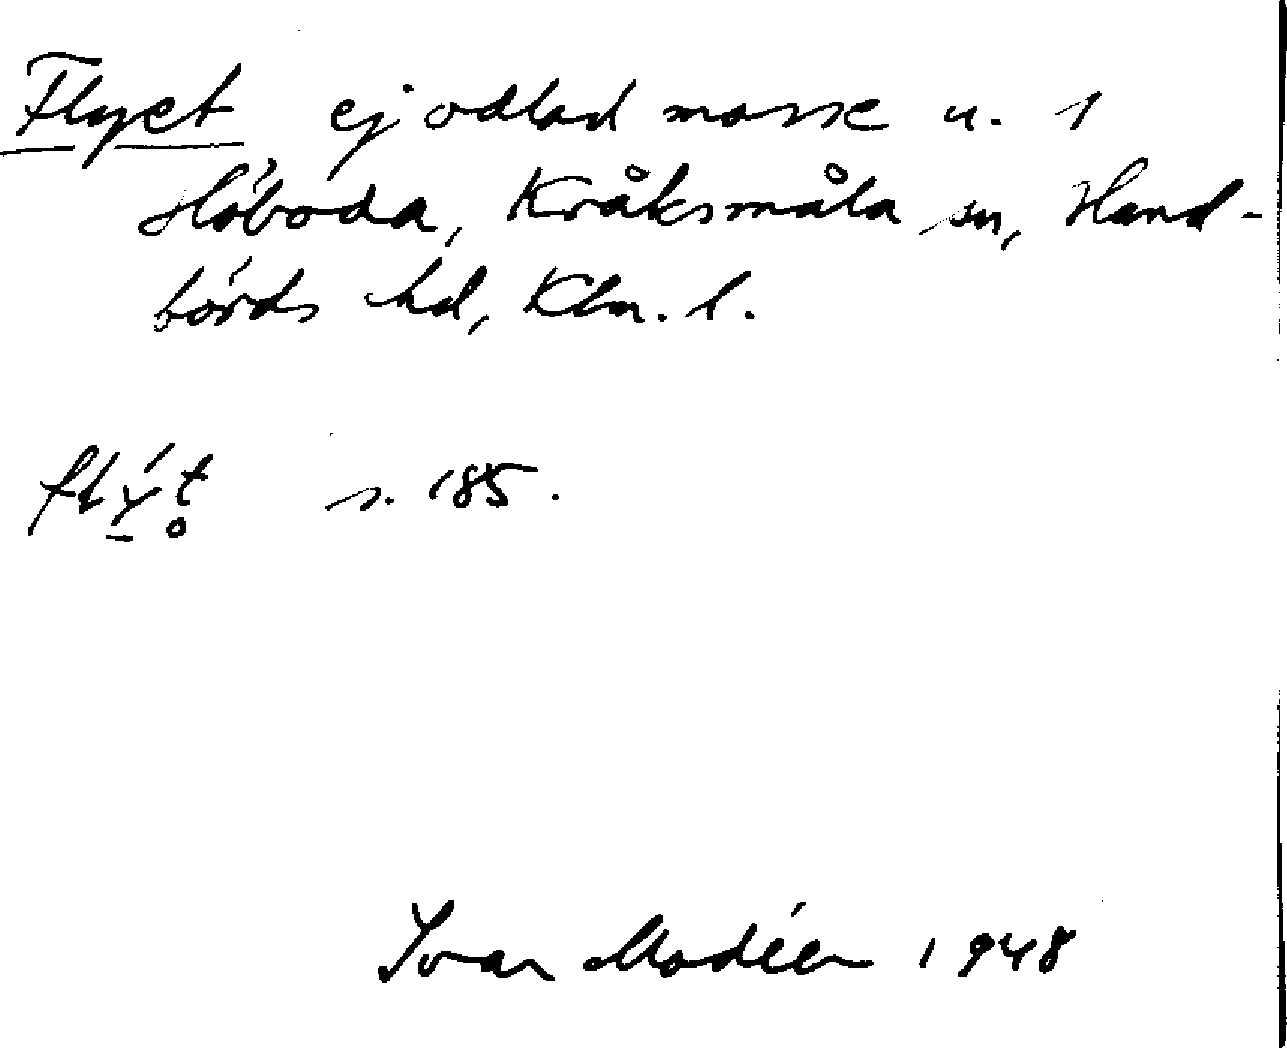 Flyet ej odlad mosse u. 1
Höboda, Kråksmåla sn, Hand-
börds hd, Klm. l.
flý̠t̥ s. 185.
Ivar Modéer 1948